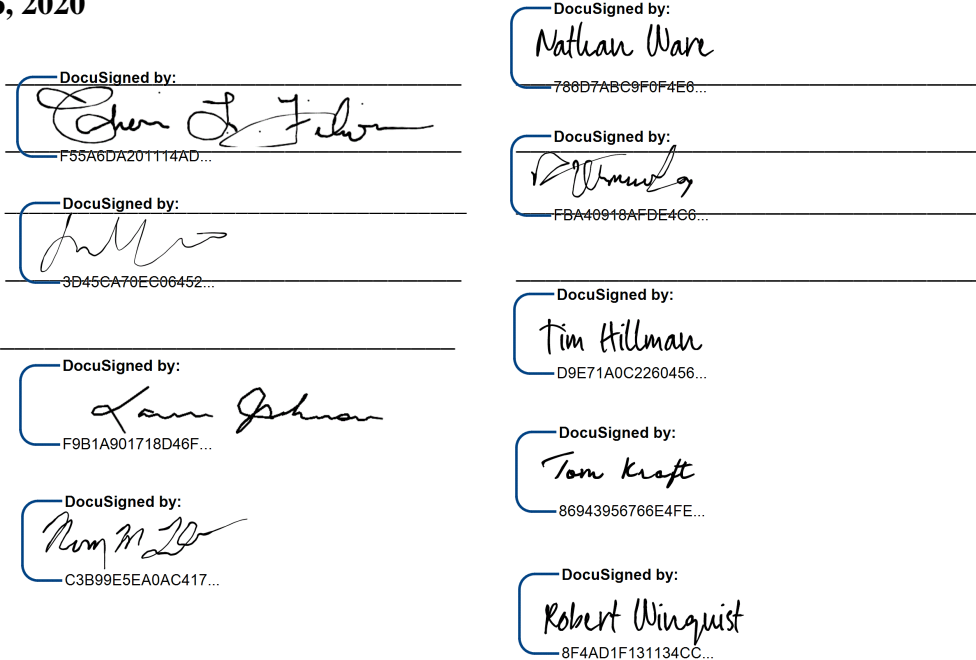 , 2020
DocuSigned by:
F55A6DA201114AD...
DocuSigned by:
3D45CA70EC06452...
DocuSigned by:
Johnson
F9B1A901718D46F...
DocuSigned by:
C3B99E5EA0AC417...
DocuSigned by:
Nathan Ware
786D7ABC9F0F4E6...
DocuSigned by:
FBA40918AFDE4C6...
DocuSigned by:
Tim Hillman
D9E71A0C2260456...
DocuSigned by:
Tom Kraft
86943956766E4FE...
DocuSigned by:
Robert Winquist
8F4AD1F131134CC...